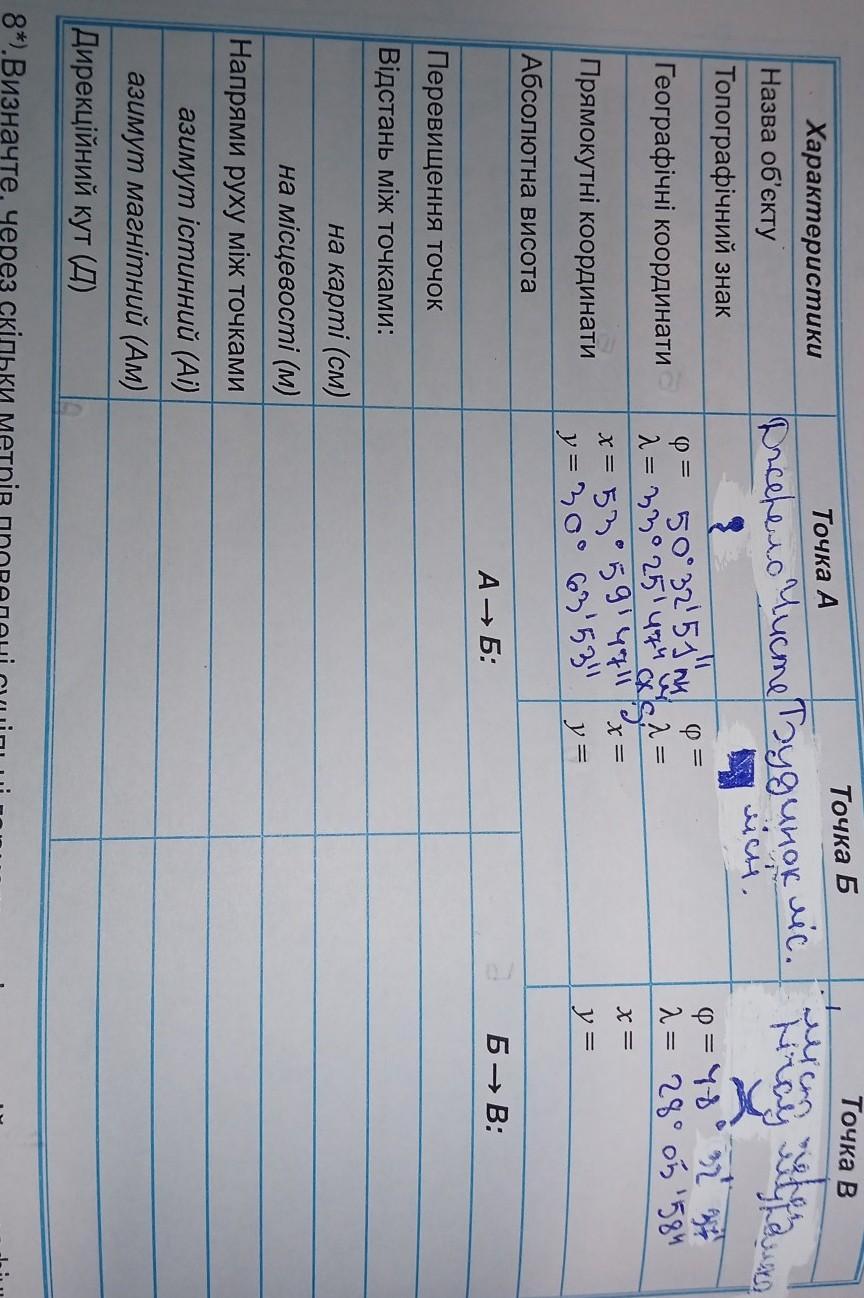 Характеристики Точка А Точка Б Точка В
Назва об'єкту Джерело Чисте Будинок міс. міст через річку
Топографічний знак місн.
Географічні координати φ = 50°32'51" λ = 33°25'47" φ = λ = φ = 48° 32' λ = 28° 05' 58"
Прямокутні координати x = 53°59'47" y = 30°63'53" x = y = x = y =
Абсолютна висота
А → Б: Б → В:
Перевищення точок
Відстань між точками:
на карті (см)
на місцевості (м)
Напрями руху між точками
азимут істинний (Аі)
азимут магнітний (Ам)
Дирекційний кут (Д)
8*).Визначте, через скільки метрів проведені суцільні